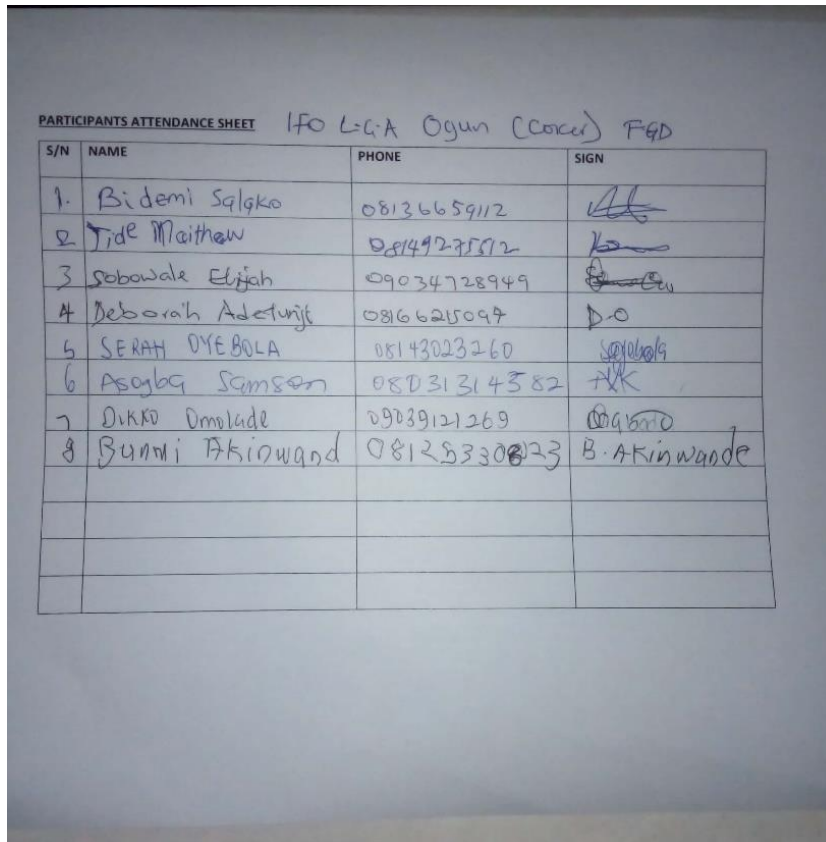 PARTICIPANTS ATTENDANCE SHEET IFO L.G.A Ogun FGD
S/N NAME PHONE SIGN
1. Bidemi Salako 08136659112
2 Jide Maithew 08149275512
3 Sobowale Elijah 09034728949
4 Deborah 08166215097 D.O
5 SERAH OYEBOLA 08143023260
6 Asogba Samson 08031314582
7 DIKKO Omolade 09039121269
8 Bunmi Akinwand B. Akinwande